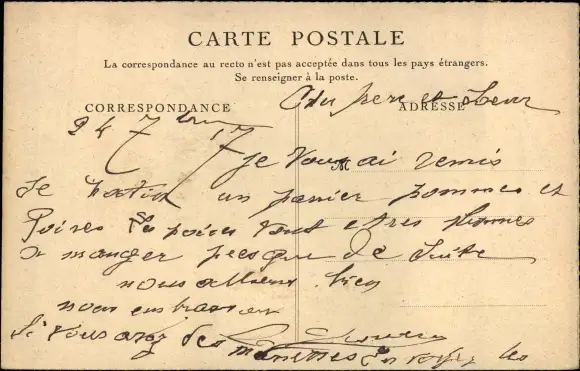 CARTE POSTALE
La correspondance au recto n'est pas acceptée dans tous les pays étrangers.
Se renseigner à la poste.
CORRESPONDANCE
ADRESSE
Cher pere et
24 7bre 17
je vous ai remis
se matin un panier pommes et
Poires les poires vont etres
a manger presque de suite
nous allons bien
nous embrassons
Si vous avez des envoyez les